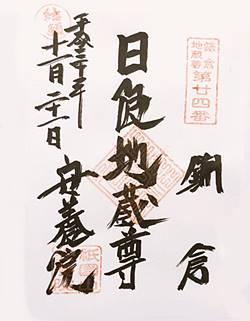 鎌倉
地蔵尊
第廿四番
鎌倉
日限地蔵尊
結願
平成二十年
十一月二十一日
安養院